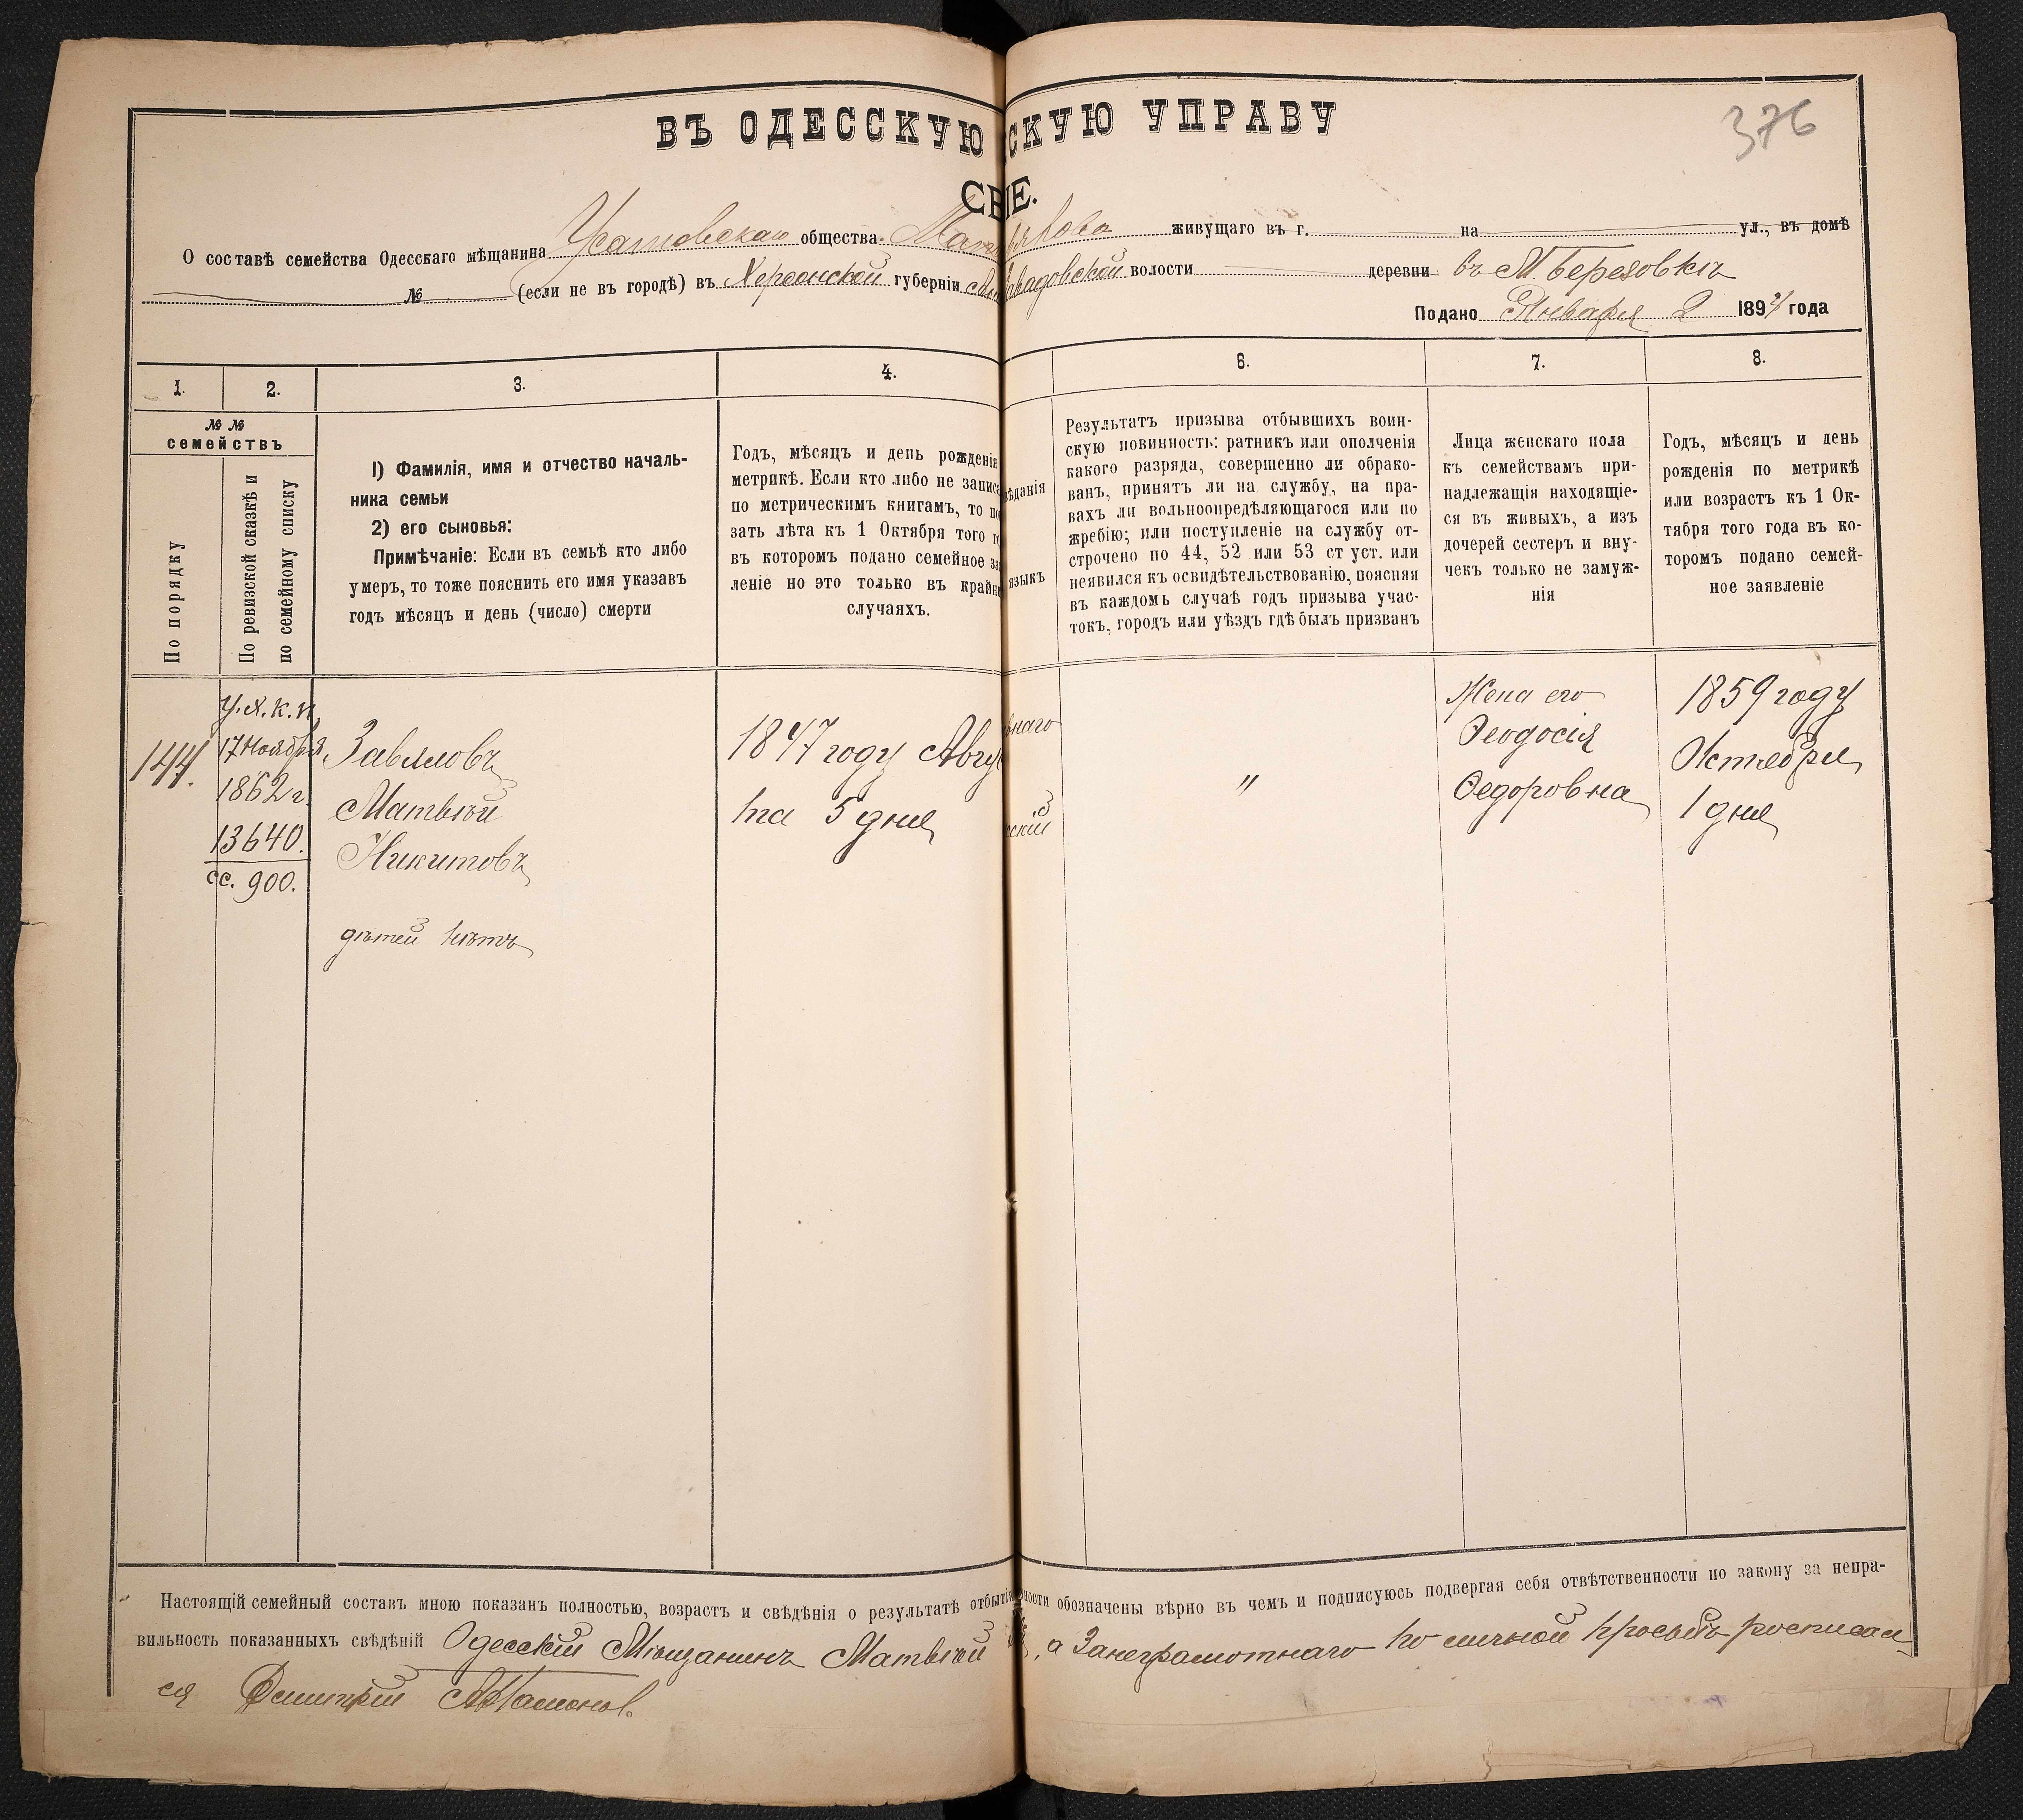 ВЪ ОДЕССКУЮ СКУЮ УПРАВУ
376
СЕ IE.
О составѣ семейства Одесскаго мѣщанина Усатовскаго общества живущаго въ г. на ул., въ домѣ
№ (если не въ городѣ) въ Херсонской губерніи волости деревни въ М. Березовкѣ
Подано Января 2 1894 года
1. 2. 3. 4. 6. 7. 8.
№ №
семействъ
По порядку
По ревизской сказкѣ и
по семейному списку
1) Фамилія, имя и отчество началь-
ника семьи
2) его сыновья:
Примѣчаніе: Если въ семьѣ кто либо
умеръ, то тоже пояснить его имя указавъ
годъ мѣсяцъ и день (число) смерти
Годъ, мѣсяцъ и день рожденія
метрикѣ. Если кто либо не записа
по метрическимъ книгамъ, то по
зать лѣта къ 1 Октября того го
въ которомъ подано семейное за
леніе но это только въ крайн
случаяхъ.
ѣданія
языкъ
Результатъ призыва отбывшихъ воин-
скую повинность: ратникъ или ополченія
какого разряда, совершенно ли обрако-
ванъ, принятъ ли на службу, на пра-
вахъ ли вольноопредѣляющагося или по
жребію; или поступленіе на службу от-
строчено по 44, 52 или 53 ст уст. или
неявился къ освидѣтельствованію, поясняя
въ каждомъ случаѣ годъ призыва учас-
токъ, городъ или уѣздъ гдѣ былъ призванъ
Лица женскаго пола
къ семействамъ при-
надлежащія находящіе-
ся въ живыхъ, а изъ
дочерей сестеръ и вну-
чекъ только не замуж-
нія
Годъ, мѣсяцъ и день
рожденія по метрикѣ
или возрастъ къ 1 Ок-
тября того года въ ко-
торомъ подано семей-
ное заявленіе
144.
У.Х.К.П.
17 Ноября
1862 г.
13640.
сс. 900.
Завяловъ
Матвѣй
Никитовъ
дѣтей нѣтъ
1847 году Авгу
та 5 дня
внаго
скій
"
Жена его
Феодосія
Федоровна
1859 году
Октября
1 дня
Настоящій семейный составъ мною показанъ полностью, возрастъ и свѣдѣнія о результатѣ отбытія ности обозначены вѣрно въ чемъ и подписуюсь подвергая себя отвѣтственности по закону за непра-
вильность показанныхъ свѣдѣній Одесскій Мѣщанинъ Матвѣй , а Занеграмотнаго по личной прозьбѣ росписал
ся Дмитрій